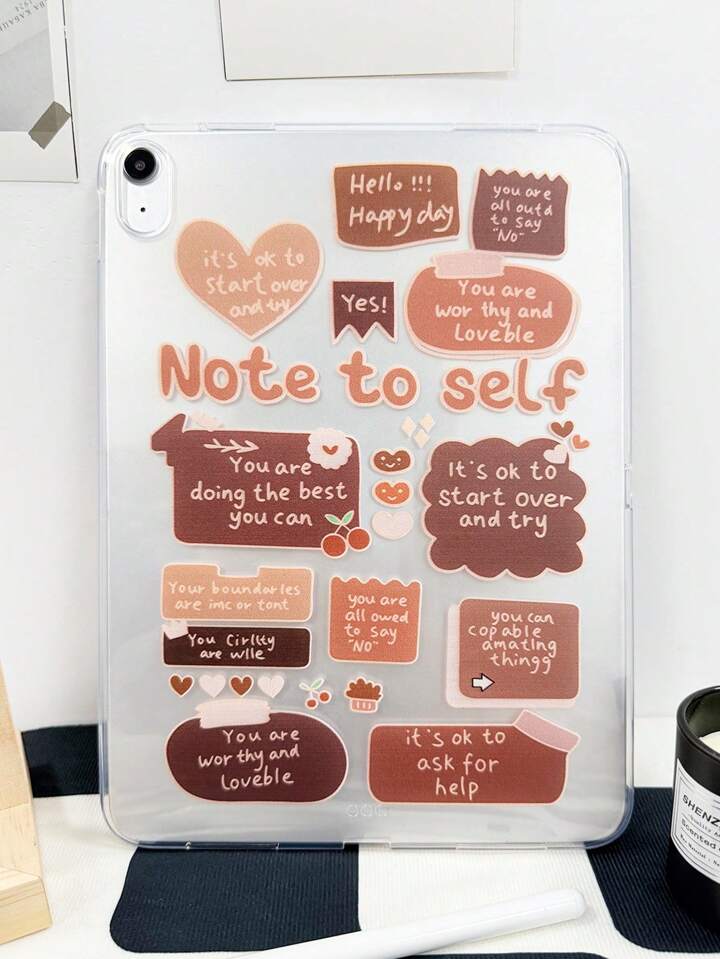 Hello !!!
Happy day
you are
all outd
to say
"No"
it's ok to
start over
and try
Yes!
You are
wor thy and
Loveble
Note to self
You are
doing the best
you can
It's ok to
start over
and try
Your boundarles
are imc or tont
you are
all owed
to say
"NO"
you can
cop able
amating
thingg
You Cirllty
are wlle
You are
wor thy and
Loveble
it's ok to
ask for
help
SHENZ
Scented